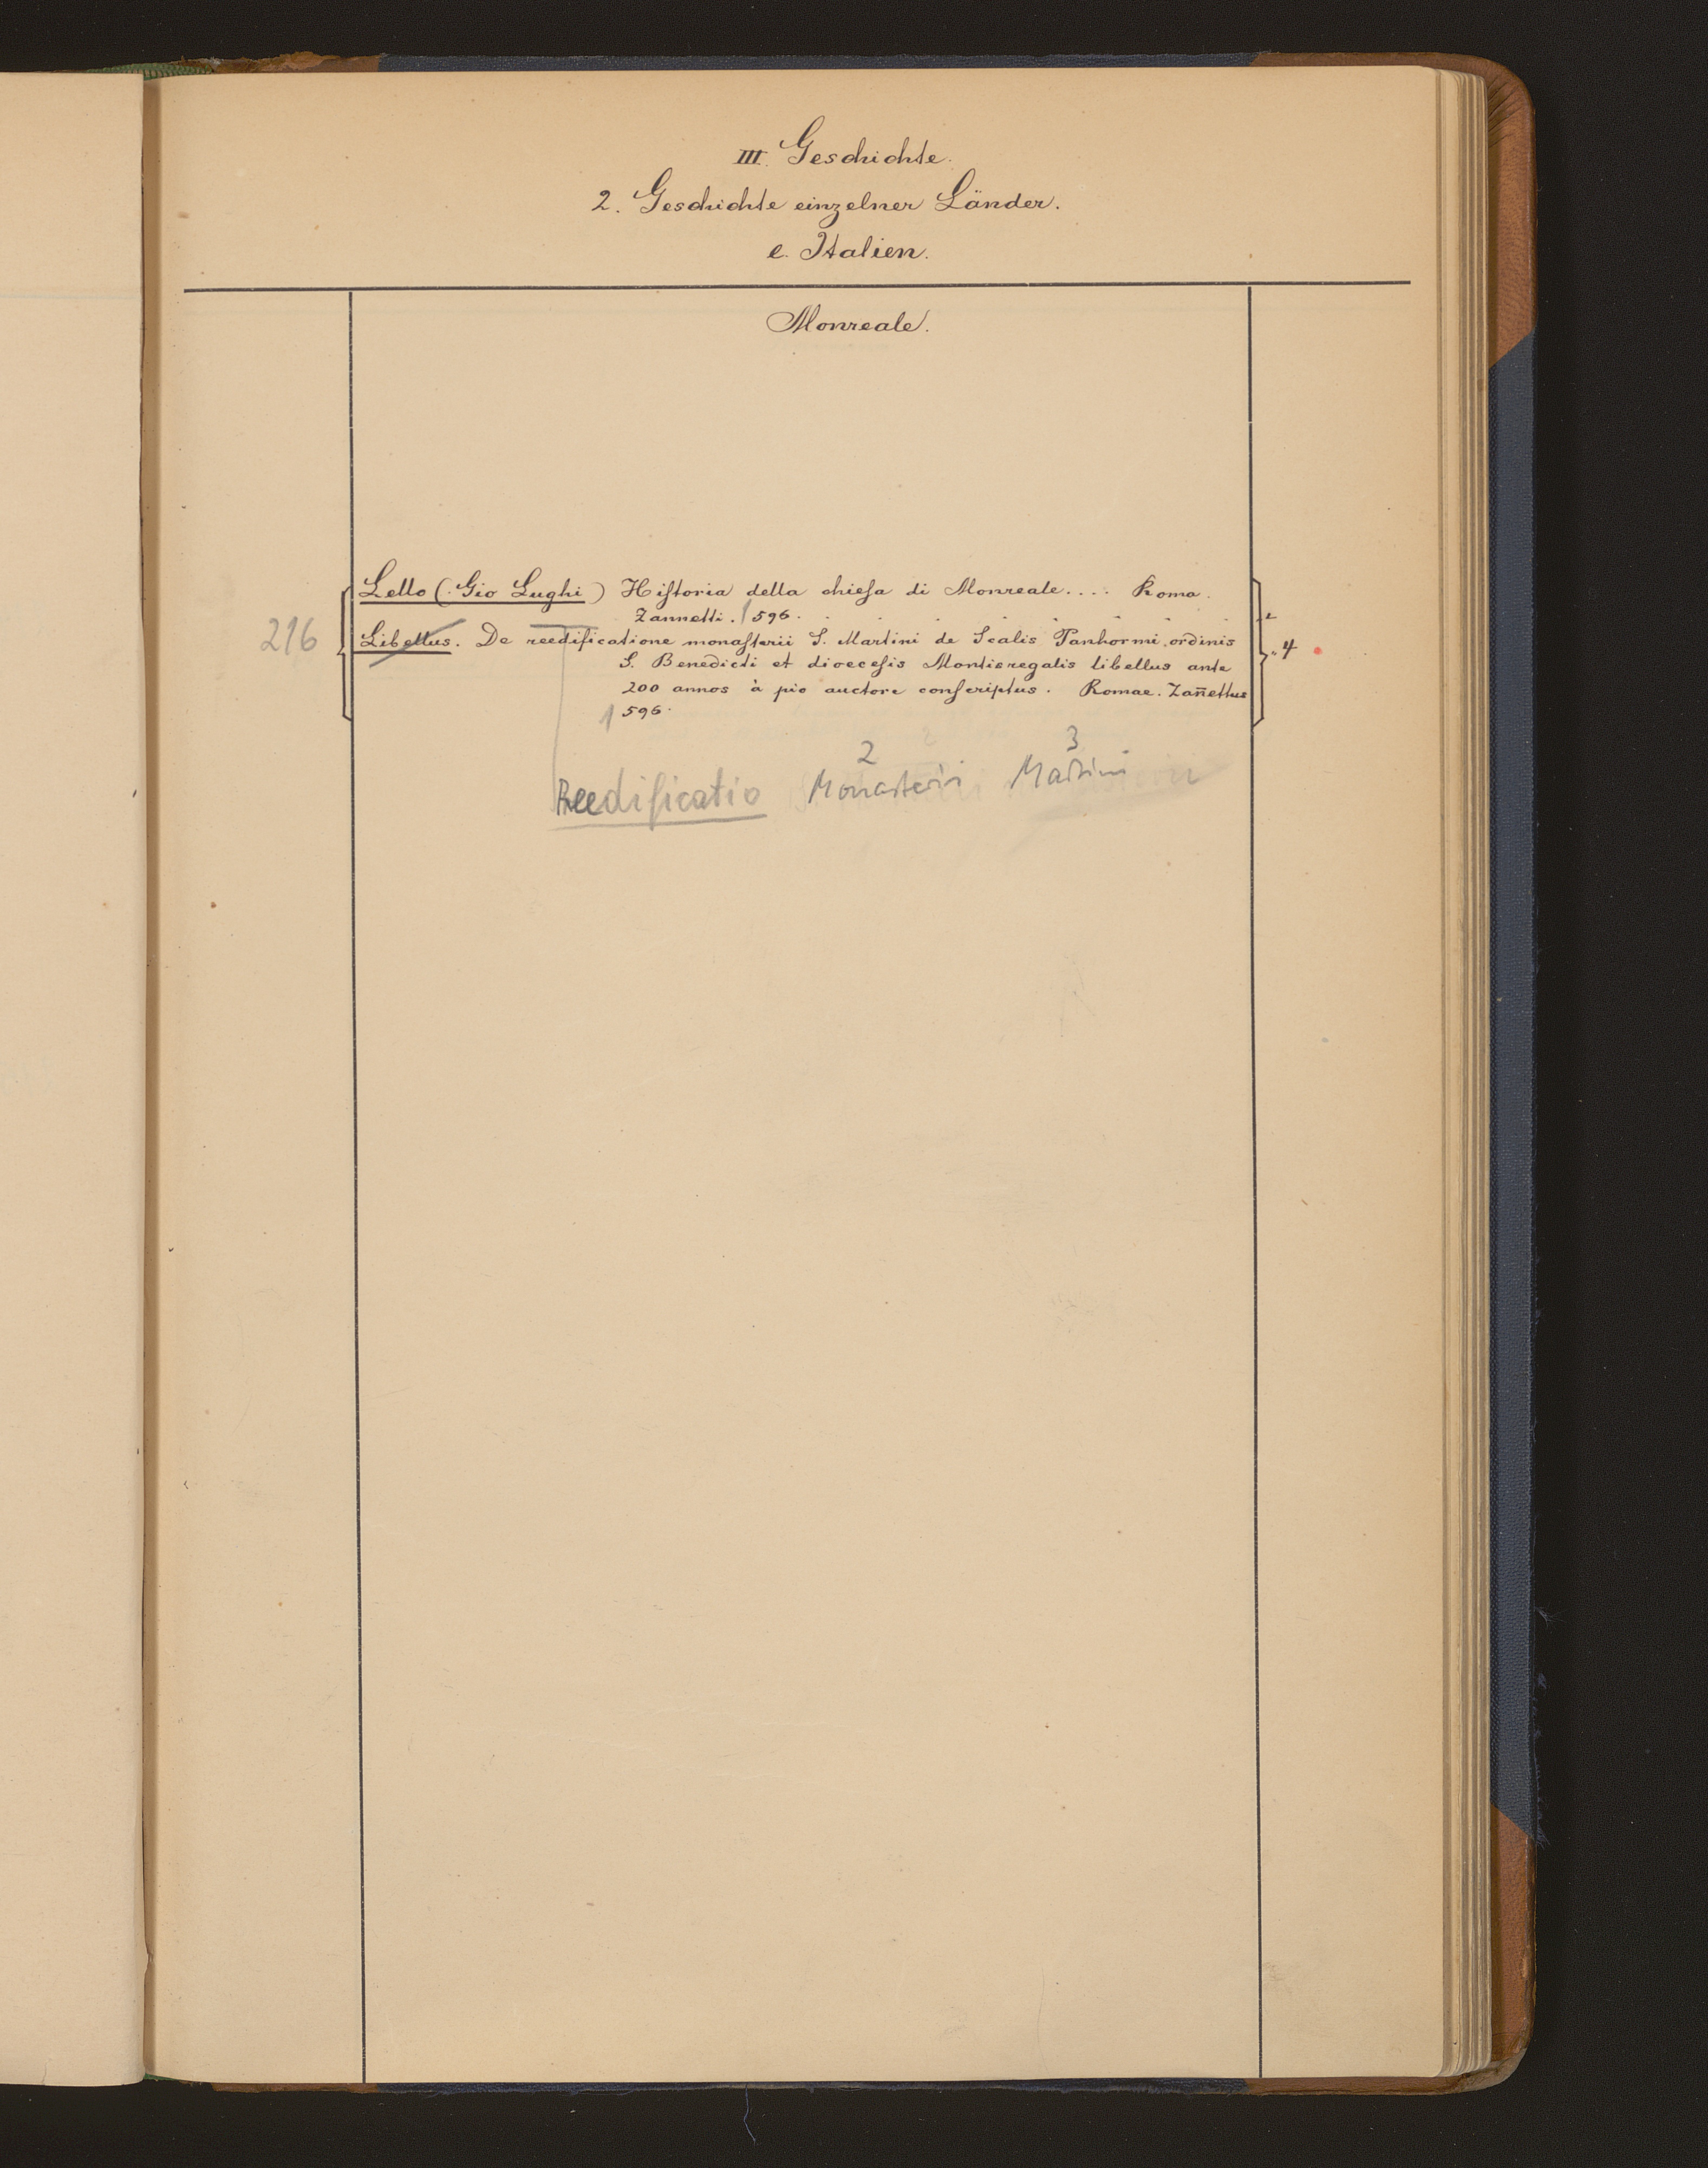 III. Geschichte.
2. Geschichte einzelner Länder.
e. Italien.
Monreale.
Lello (Gio Lughi) Hiſtoria della chieſa di Monreale.... Roma.
Zannetti. 1596.
216 Libellus. De reedificatione monaſterii S. Martini de Scalis Panhormi, ordinis
S. Benedicti et dioeceſis Montisregalis libellus ante
200 annos à pio auctore conſcriptus. Romae. Zan̄ettus
1596.
4
2 3
Reedificatio Monasterii Martini